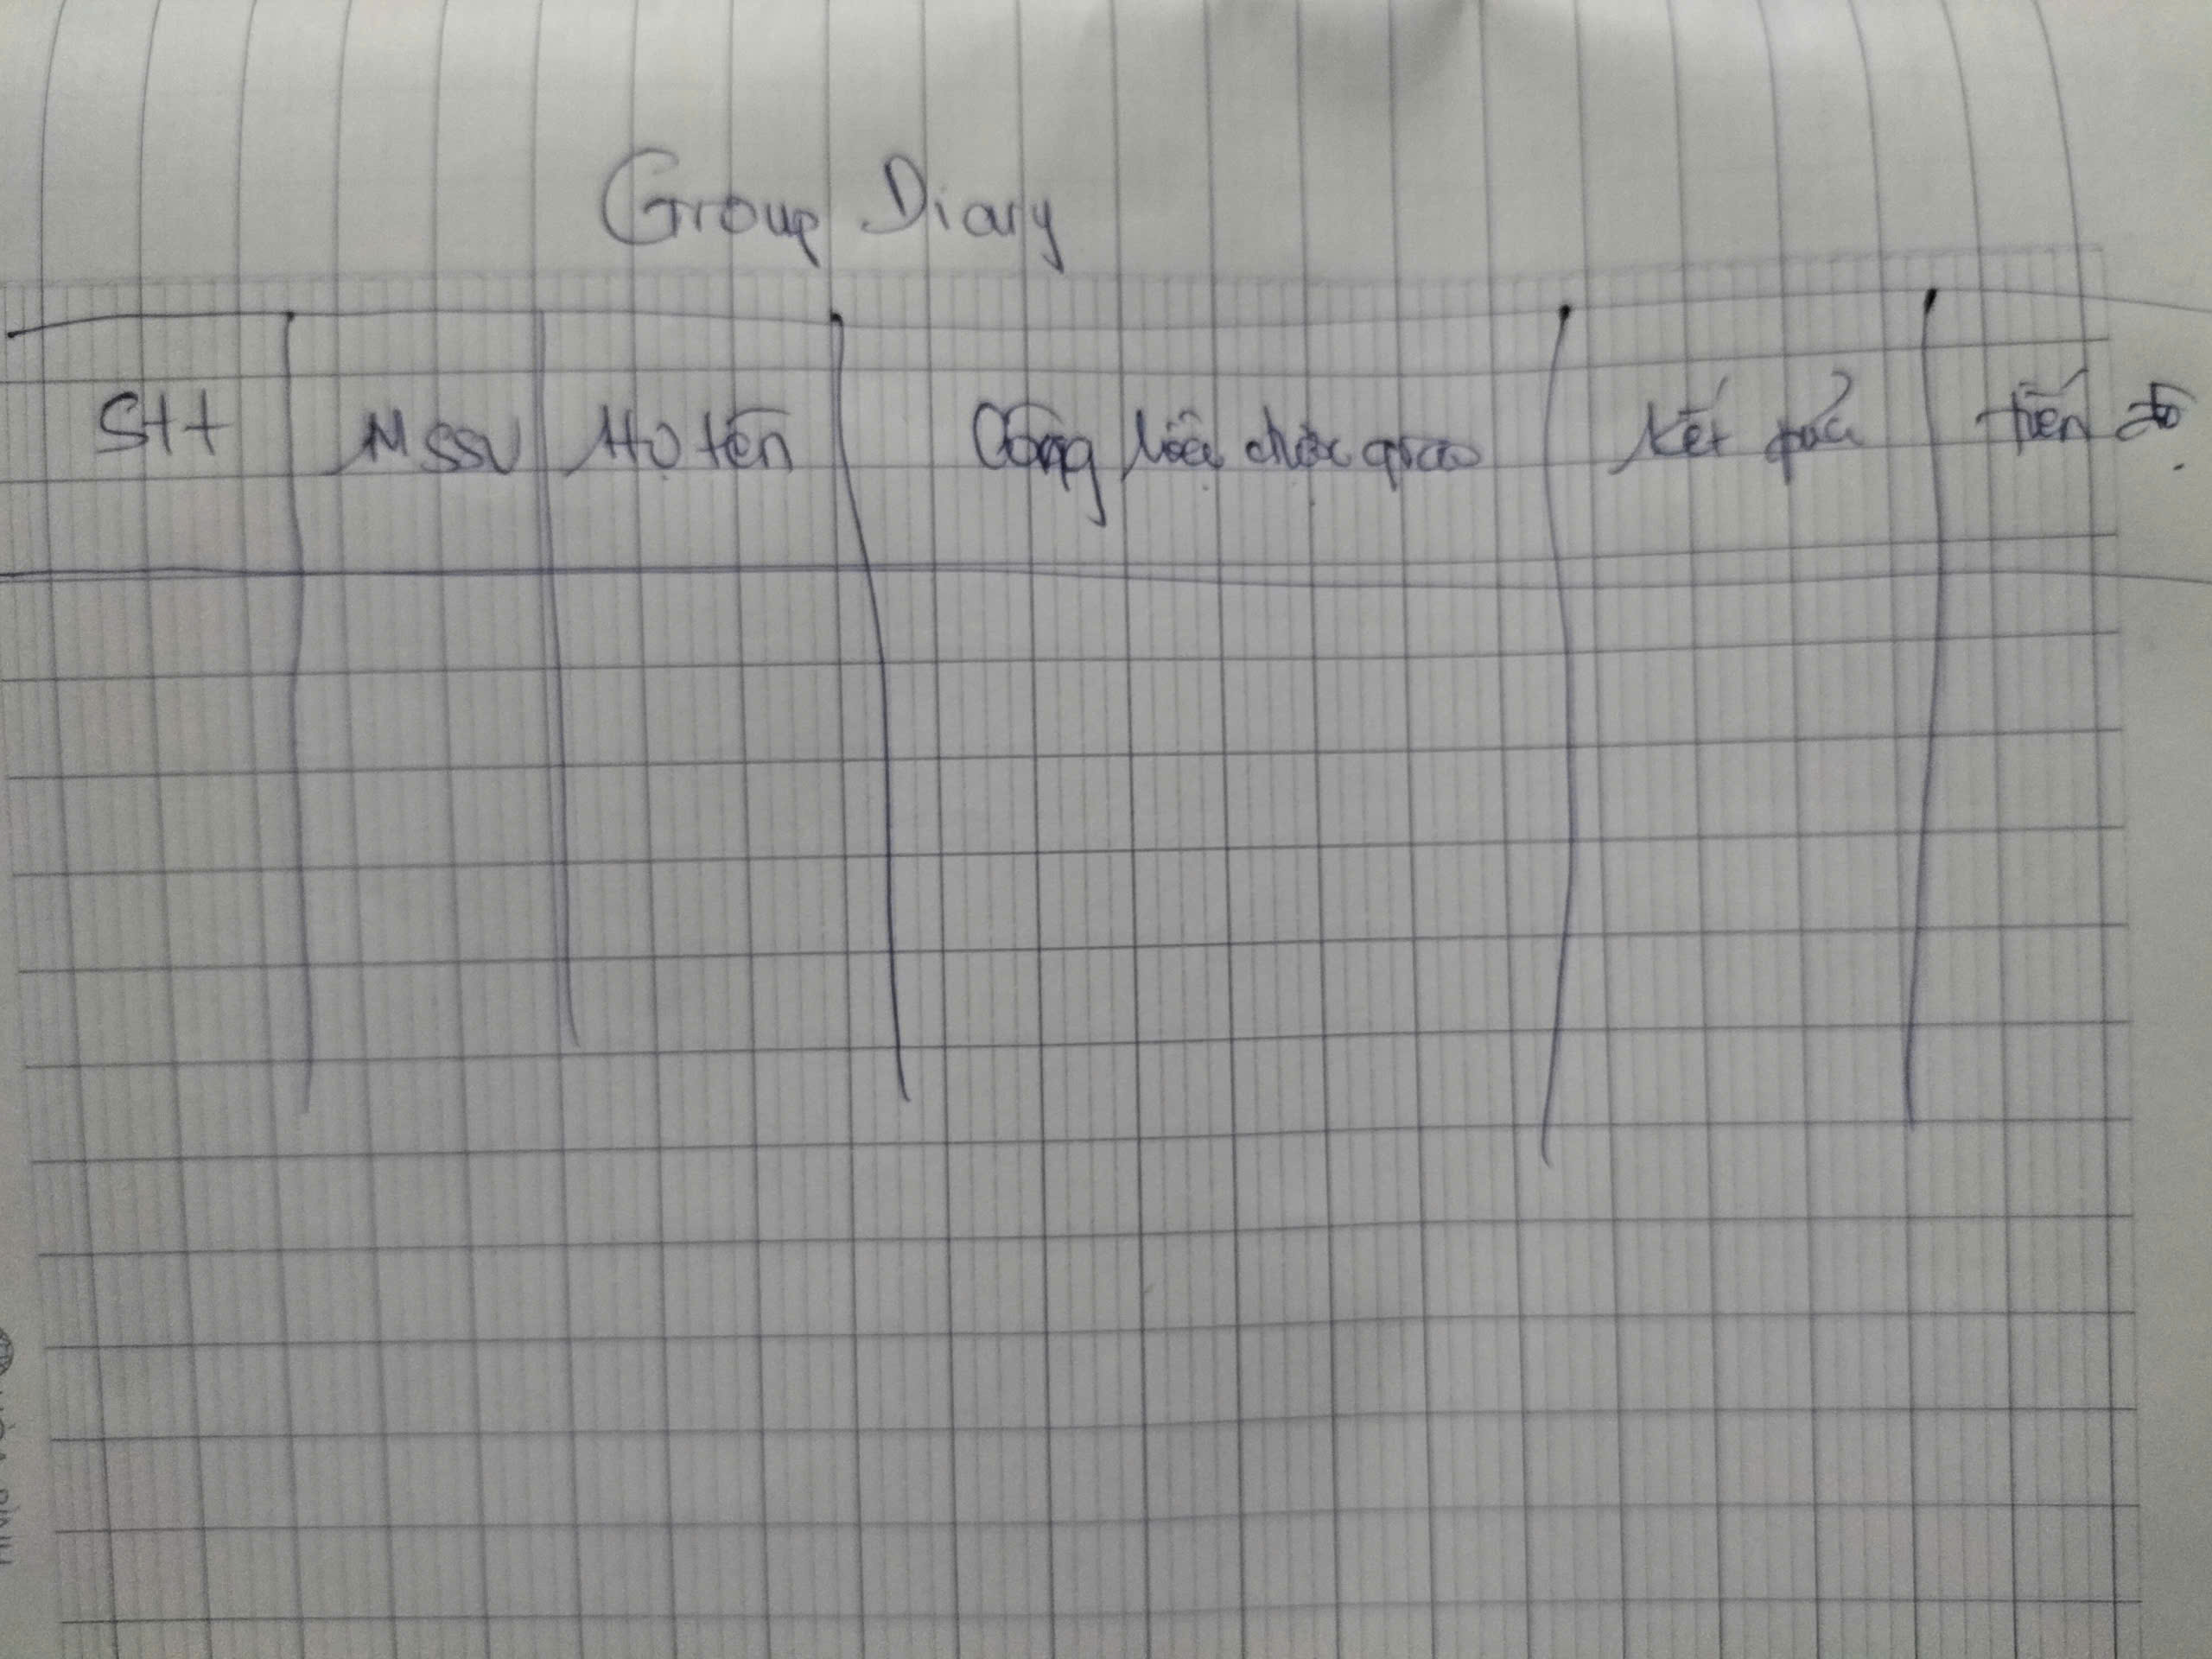 Group Diary
Stt MSSV Họ tên Công việc được giao Kết quả tiến độ